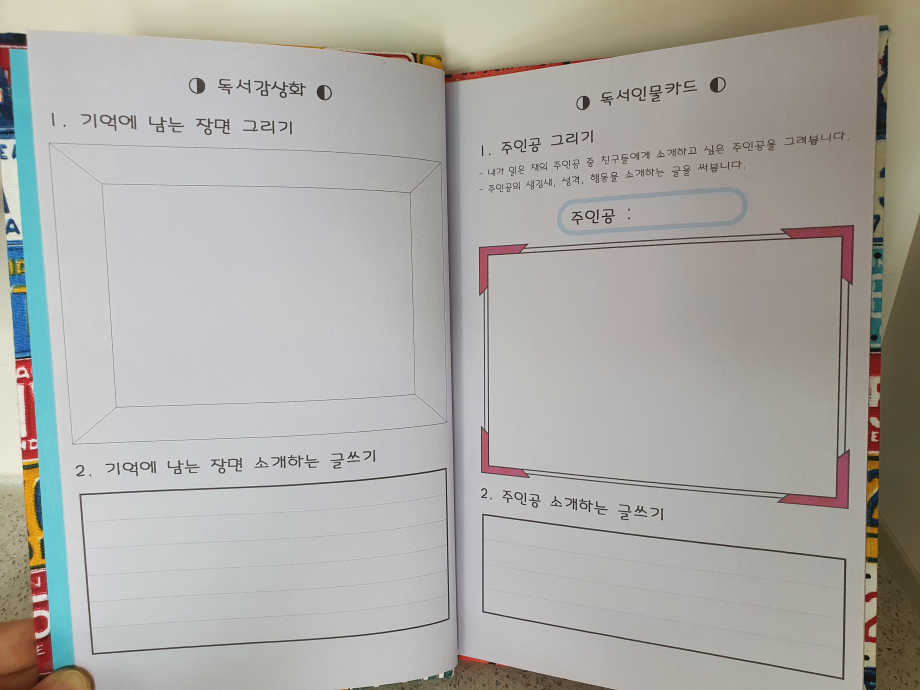 ◑ 독서감상화 ◐
1. 기억에 남는 장면 그리기
2. 기억에 남는 장면 소개하는 글쓰기
◑ 독서인물카드 ◐
1. 주인공 그리기
- 내가 읽은 책의 주인공 중 친구들에게 소개하고 싶은 주인공을 그려봅니다.
- 주인공의 생김새, 성격, 행동을 소개하는 글을 써봅니다.
주인공 :
2. 주인공 소개하는 글쓰기